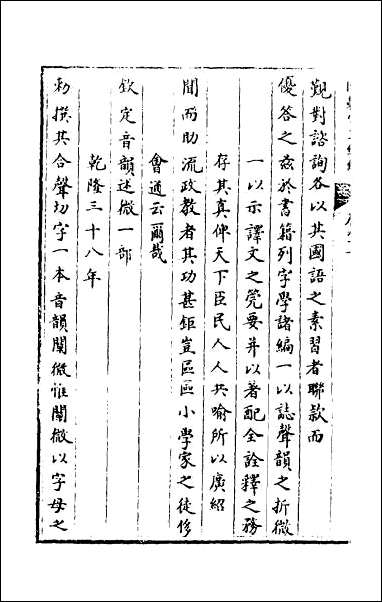 覲對諮詢各以其國語之素習者聯款而
優答之兹於書籍列字學諸編一以誌聲韻之折微
一以示譯文之筦要并以著配全詮釋之務
存其真俾天下臣民人人共喻所以廣紹
聞而助流政教者其功甚鉅豈區區小學家之徒侈
會通云爾哉
欽定音韻述微一部
乾隆三十八年
勅撰其合聲切字一本音韻闡微惟闡微以字母之